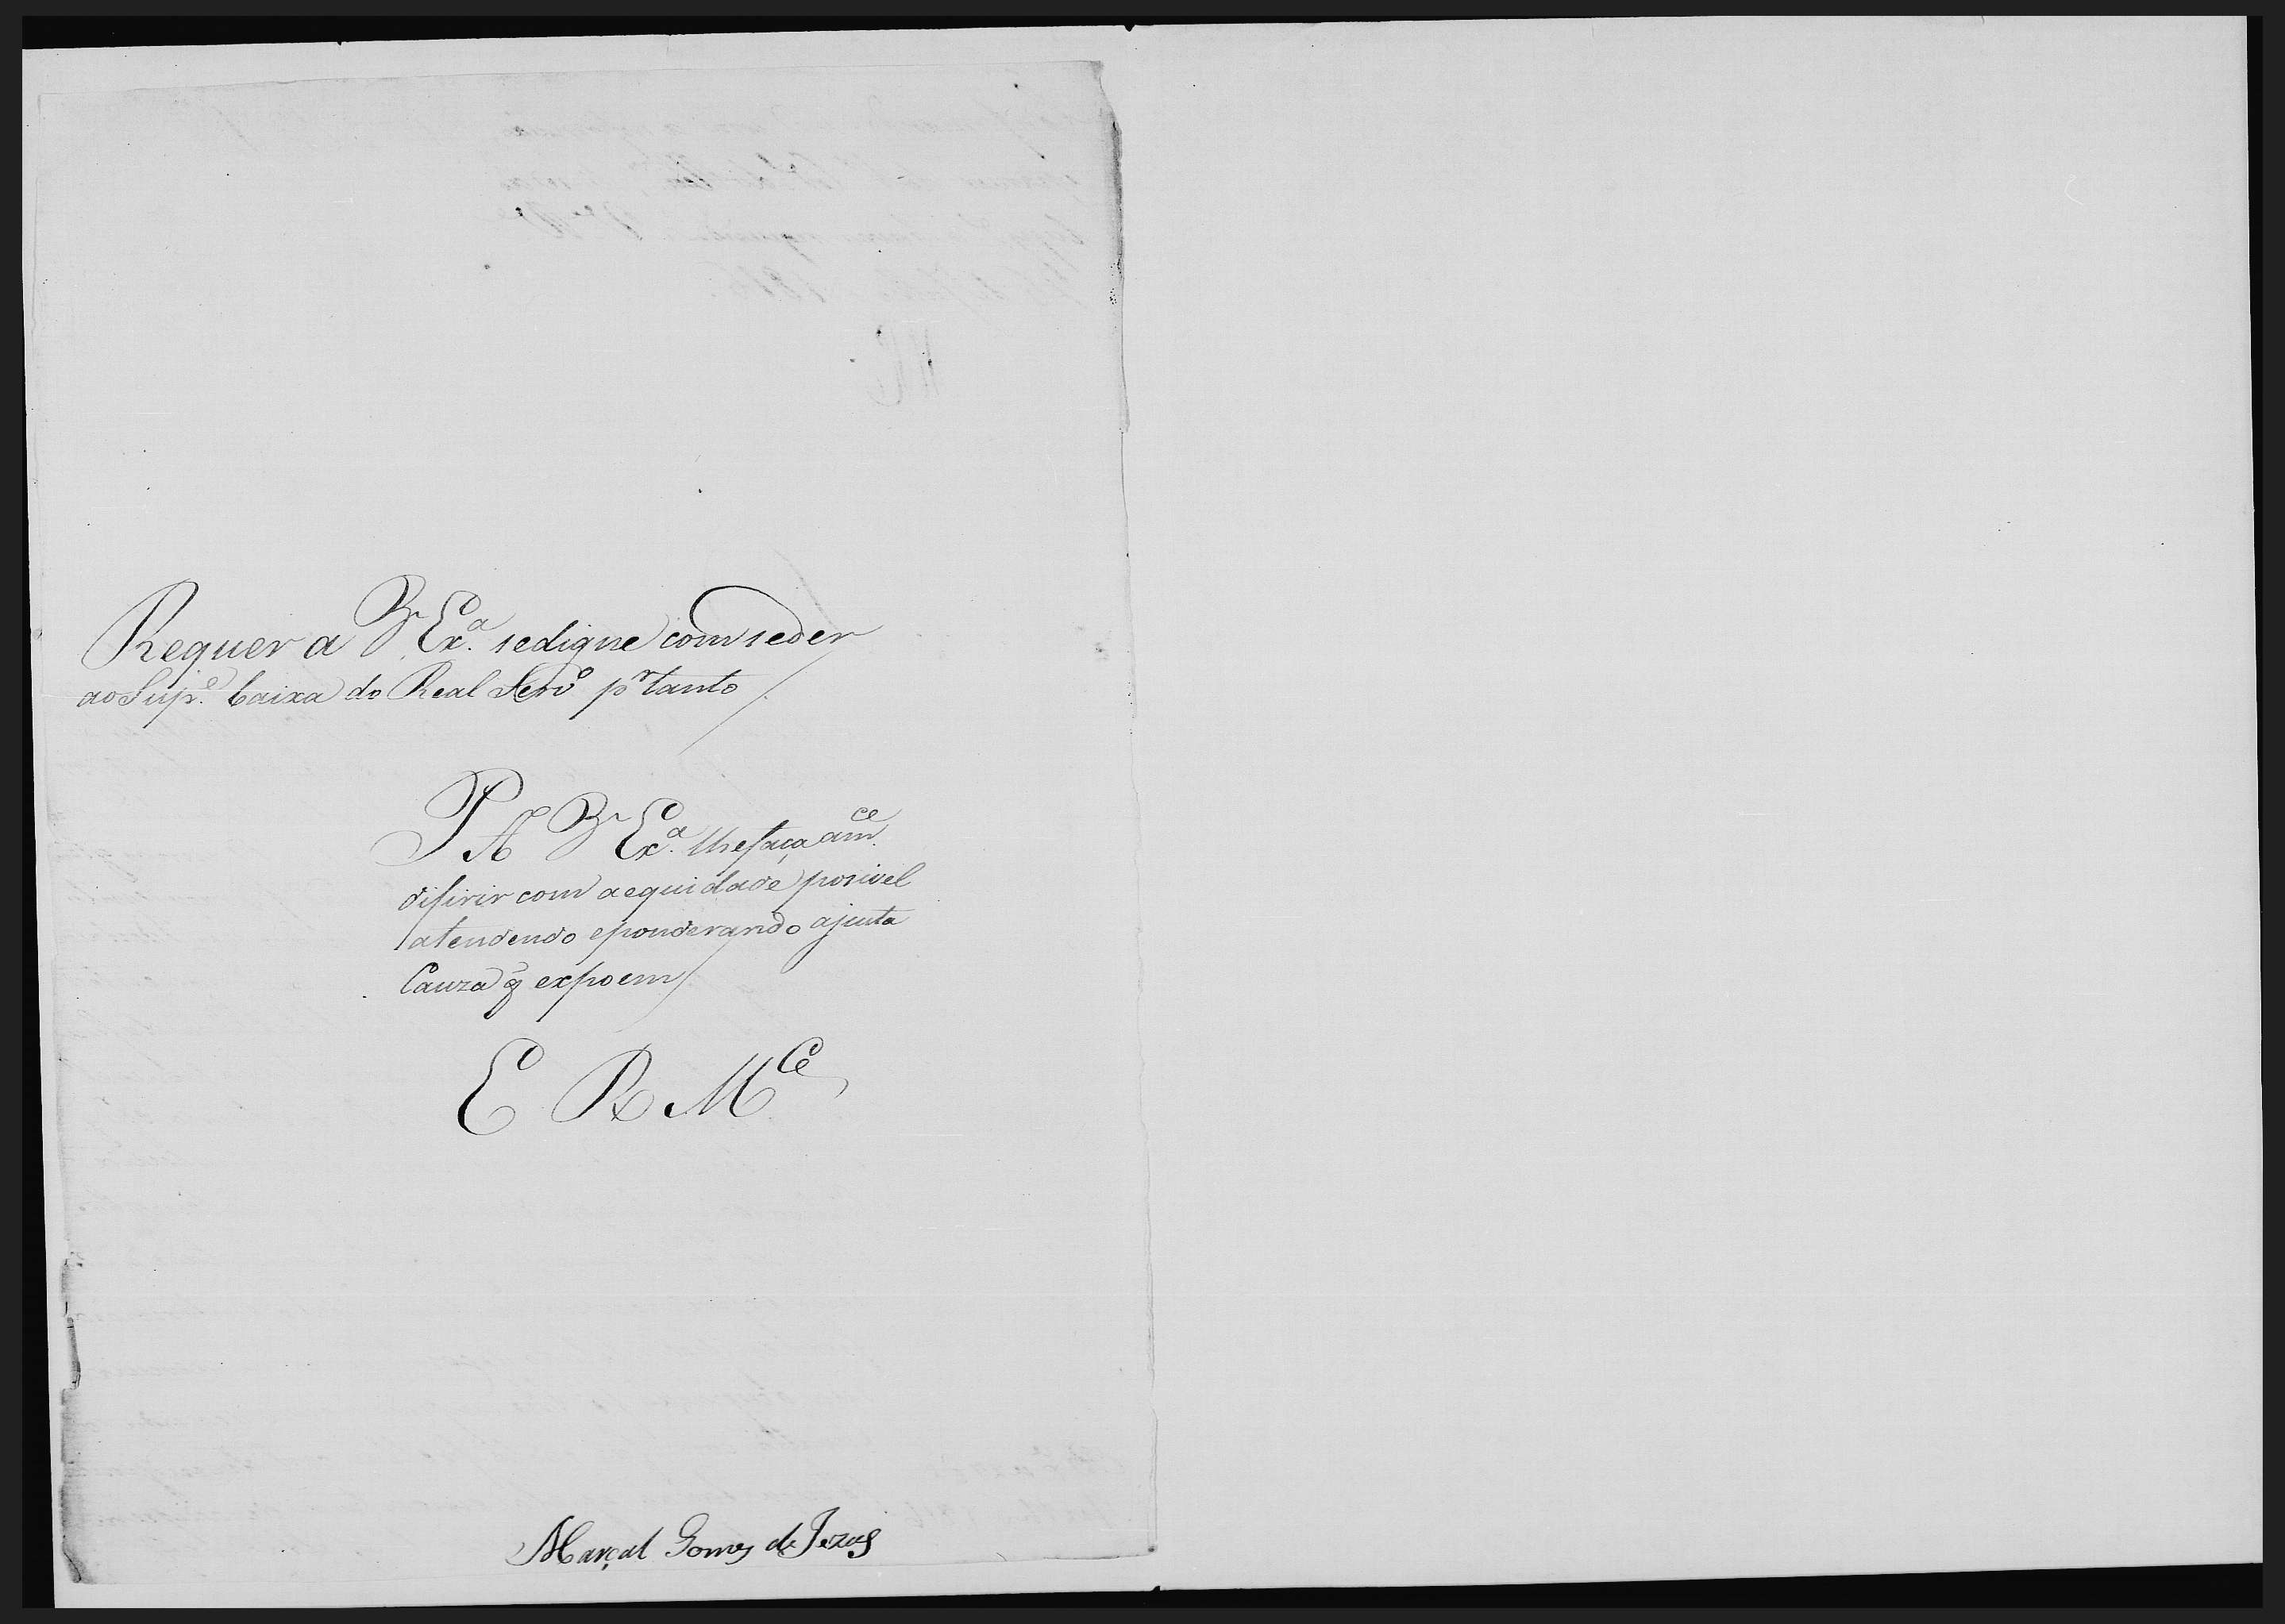 Requer a V Ex.ª sedigne comseder
ao Sup.e baixa do Real Servo pr tanto
P A V Ex.ª lhefaça am.ce
difirir com aequidade posivel
atendendo eponderando ajusta
Cauza q̃ expoem
E R M.ce
Marçal Gomes de Jezus